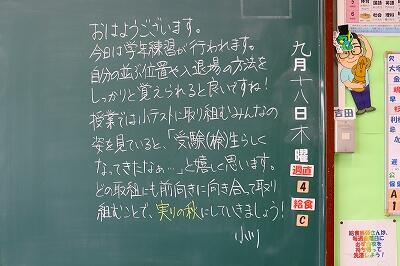 おはようございます。
今日は学年練習が行われます。
自分の並ぶ位置や入退場の方法を
しっかりと覚えられると良いですね！
授業では小テストに取り組むみんなの
姿を見ていると、「受験(検)生らしく
なってきたなぁ…」と嬉しく思います。
どの取組にも前向きに向き合って取り
組むことで、実りの秋にしていきましょう！
小川
九月十八日木曜
週直
4
給食
C
吉田
国語
社会
理科
A
1